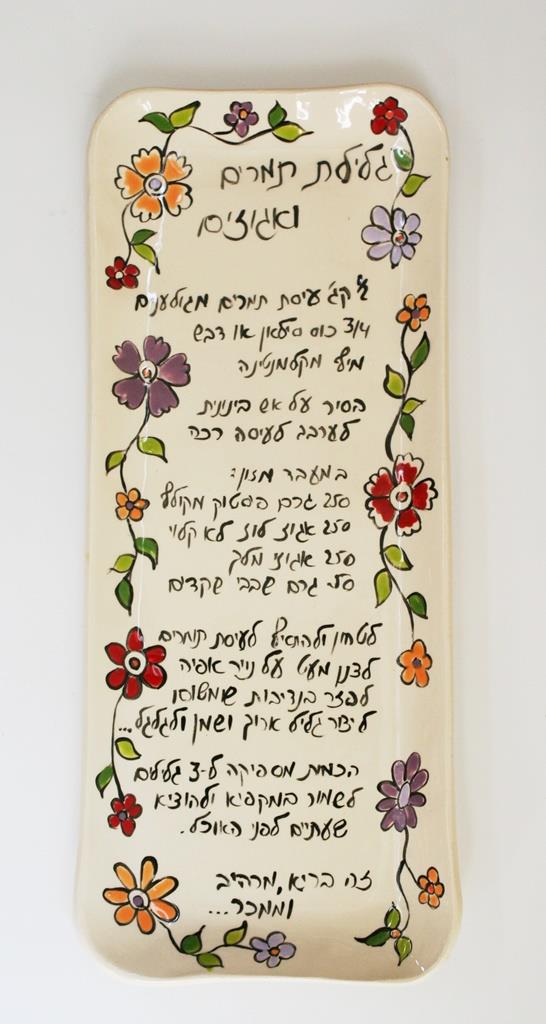 גלילת תמרים
ואגוזים
1/2 קג' עיסת תמרים מגולענים
3/4 כוס סילאן או דבש
מיץ מקלמנטינה
בסיר על אש בינונית
לערבב לעיסה רכה
במעבד מזון:
250 גרם פיסטוק מקולף
250 אגוז לוז לא קלוי
250 אגוזי מלך
50 גרם שבבי שקדים
לטחון ולהוסיף לעיסת תמרים
לצנן מעט על נייר אפיה
לפזר בנדיבות שומשום
ליצור גליל ארוך ושמן ולגלגל...
הכמות מספיקה ל-3 גלילים
לשמור במקפיא ולהוציא
שעתיים לפני האוכל.
זה בריא, מרהיב
וממכר...